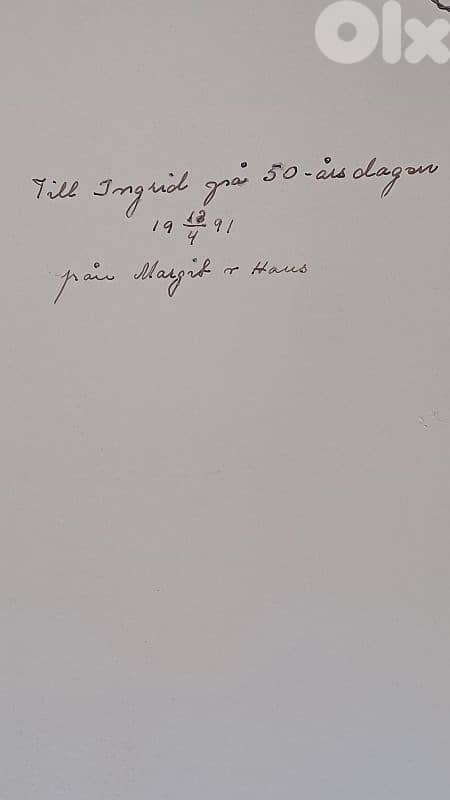 Olx
Till Ingrid på 50-årsdagen
19 12/4 91
från Margit & Hans